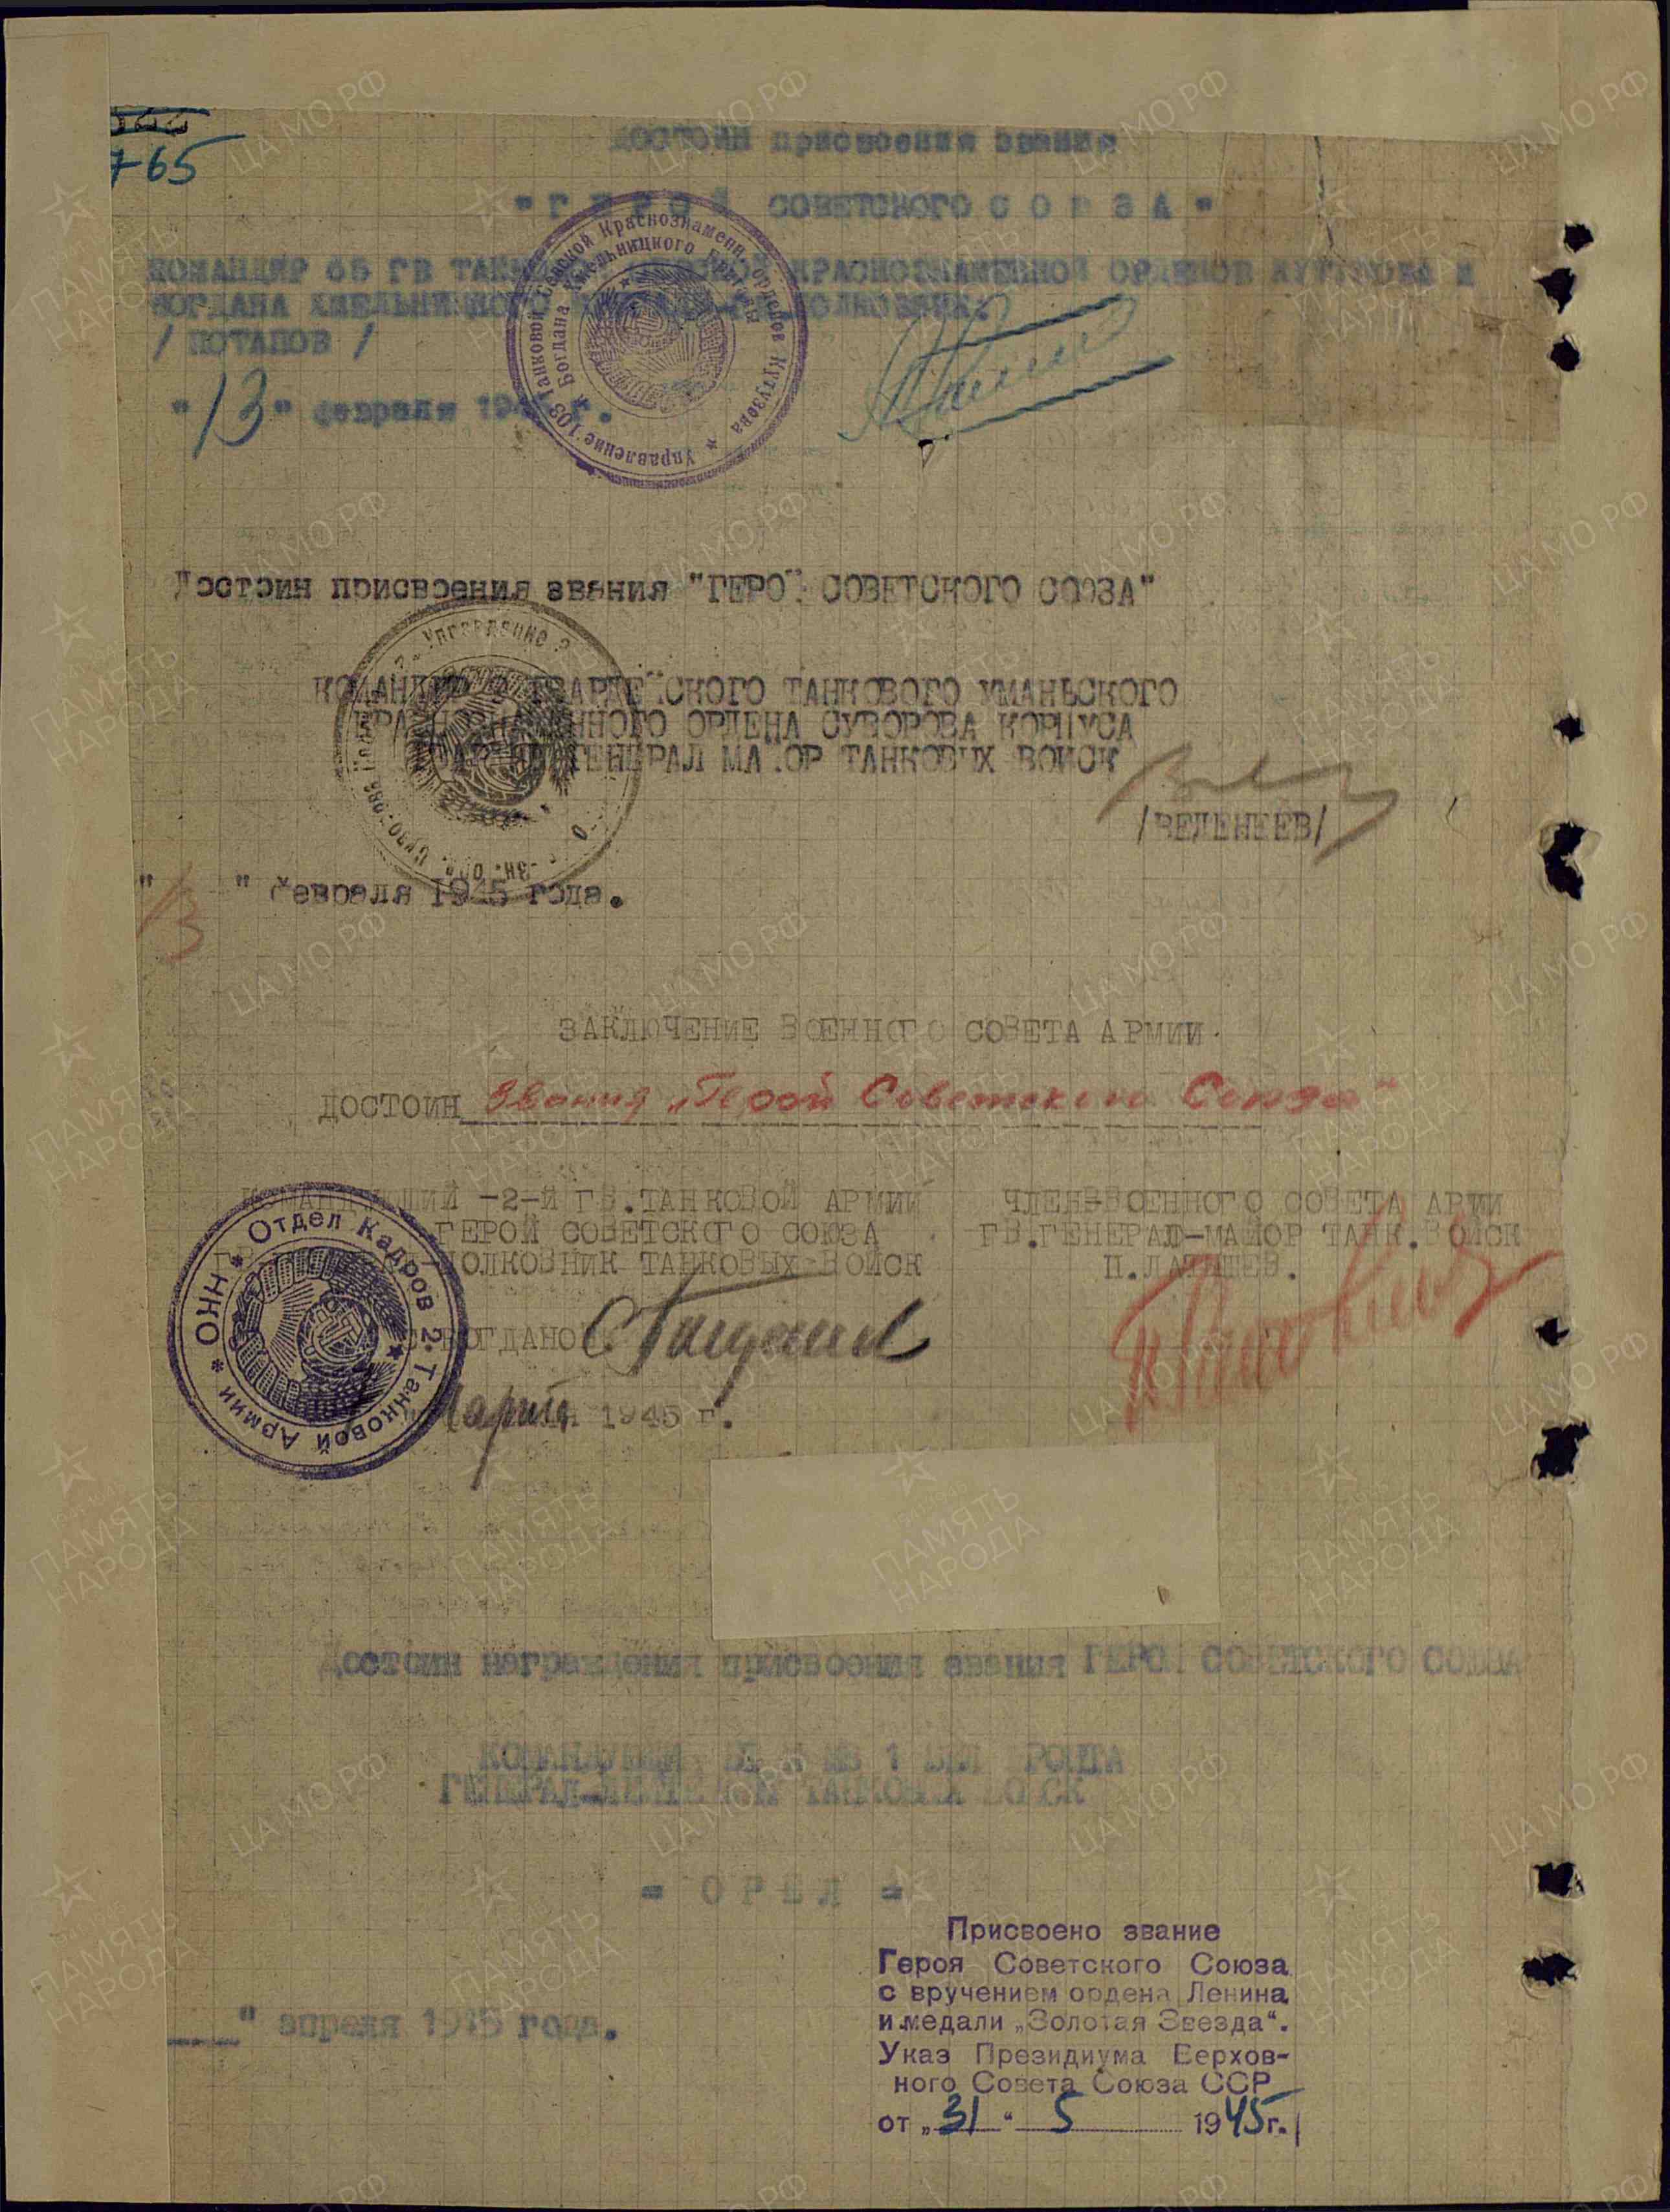 765
ДОСТОИН присвоения звания
" Г Е Р О Й СОВЕТСКОГО С О Ю З А "
КОМАНДИР 65 ГВ КРАСНОЗНАМЕННОЙ ОРДЕНОВ КУТУЗОВА И
БОГДАНА ХМЕЛЬНИЦКОГО
/ ПОТАПОВ /
" 13 " февраля 194 г.
Управление 103 Танковой Севской Краснознаменн. орденов Кутузова
и Богдана Хмельницкого Бригады
Достоин присвоения звания "ГЕРОЙ СОВЕТСКОГО СОЮЗА"
Управление
КОМАНДИР ГВАРДЕЙСКОГО ТАНКОВОГО УМАНЬСКОГО
КРАСНОЗНАМЕННОГО ОРДЕНА СУВОРОВА КОРПУСА
ГЕНЕРАЛ МАЙОР ТАНКОВЫХ ВОЙСК
/ВЕДЕНЕЕВ/
" 13 " февраля 1945 года.
ЗАКЛЮЧЕНИЕ ВОЕННОГО СОВЕТА АРМИИ.
ДОСТОИН звания „Герой Советского Союза"
КОМАНДУЮЩИЙ -2-Й ГВ.ТАНКОВОЙ АРМИИ
ГЕРОЙ СОВЕТСКОГО СОЮЗА
ПОЛКОВНИК ТАНКОВЫХ-ВОЙСК
С. БОГДАНОВ
ЧЛЕН ВОЕННОГО СОВЕТА АРМИИ
ГВ.ГЕНЕРАЛ-МАЙОР ТАНК.ВОЙСК
П.ЛАТЫШЕВ.
Отдел Кадров 2. Танковой Армии * ОНН *
Марта 1945 г.
Достоин награждения присвоения звания ГЕРОЙ СОВЕТСКОГО СОЮЗА
КОМАНДУЮЩИЙ 1 ФРОНТА
ГЕНЕРАЛ-ЛЕЙТЕНАНТ ТАНКОВЫХ ВОЙСК
= О Р Е Л =
" апреля 1945 года.
Присвоено звание
Героя Советского Союза
с вручением ордена Ленина
и медали „Золотая Звезда“.
Указ Президиума Верхов-
ного Совета Союза ССР
от „31“ 5 1945г.
ЦА МО.РФ
ПАМЯТЬ НАРОДА